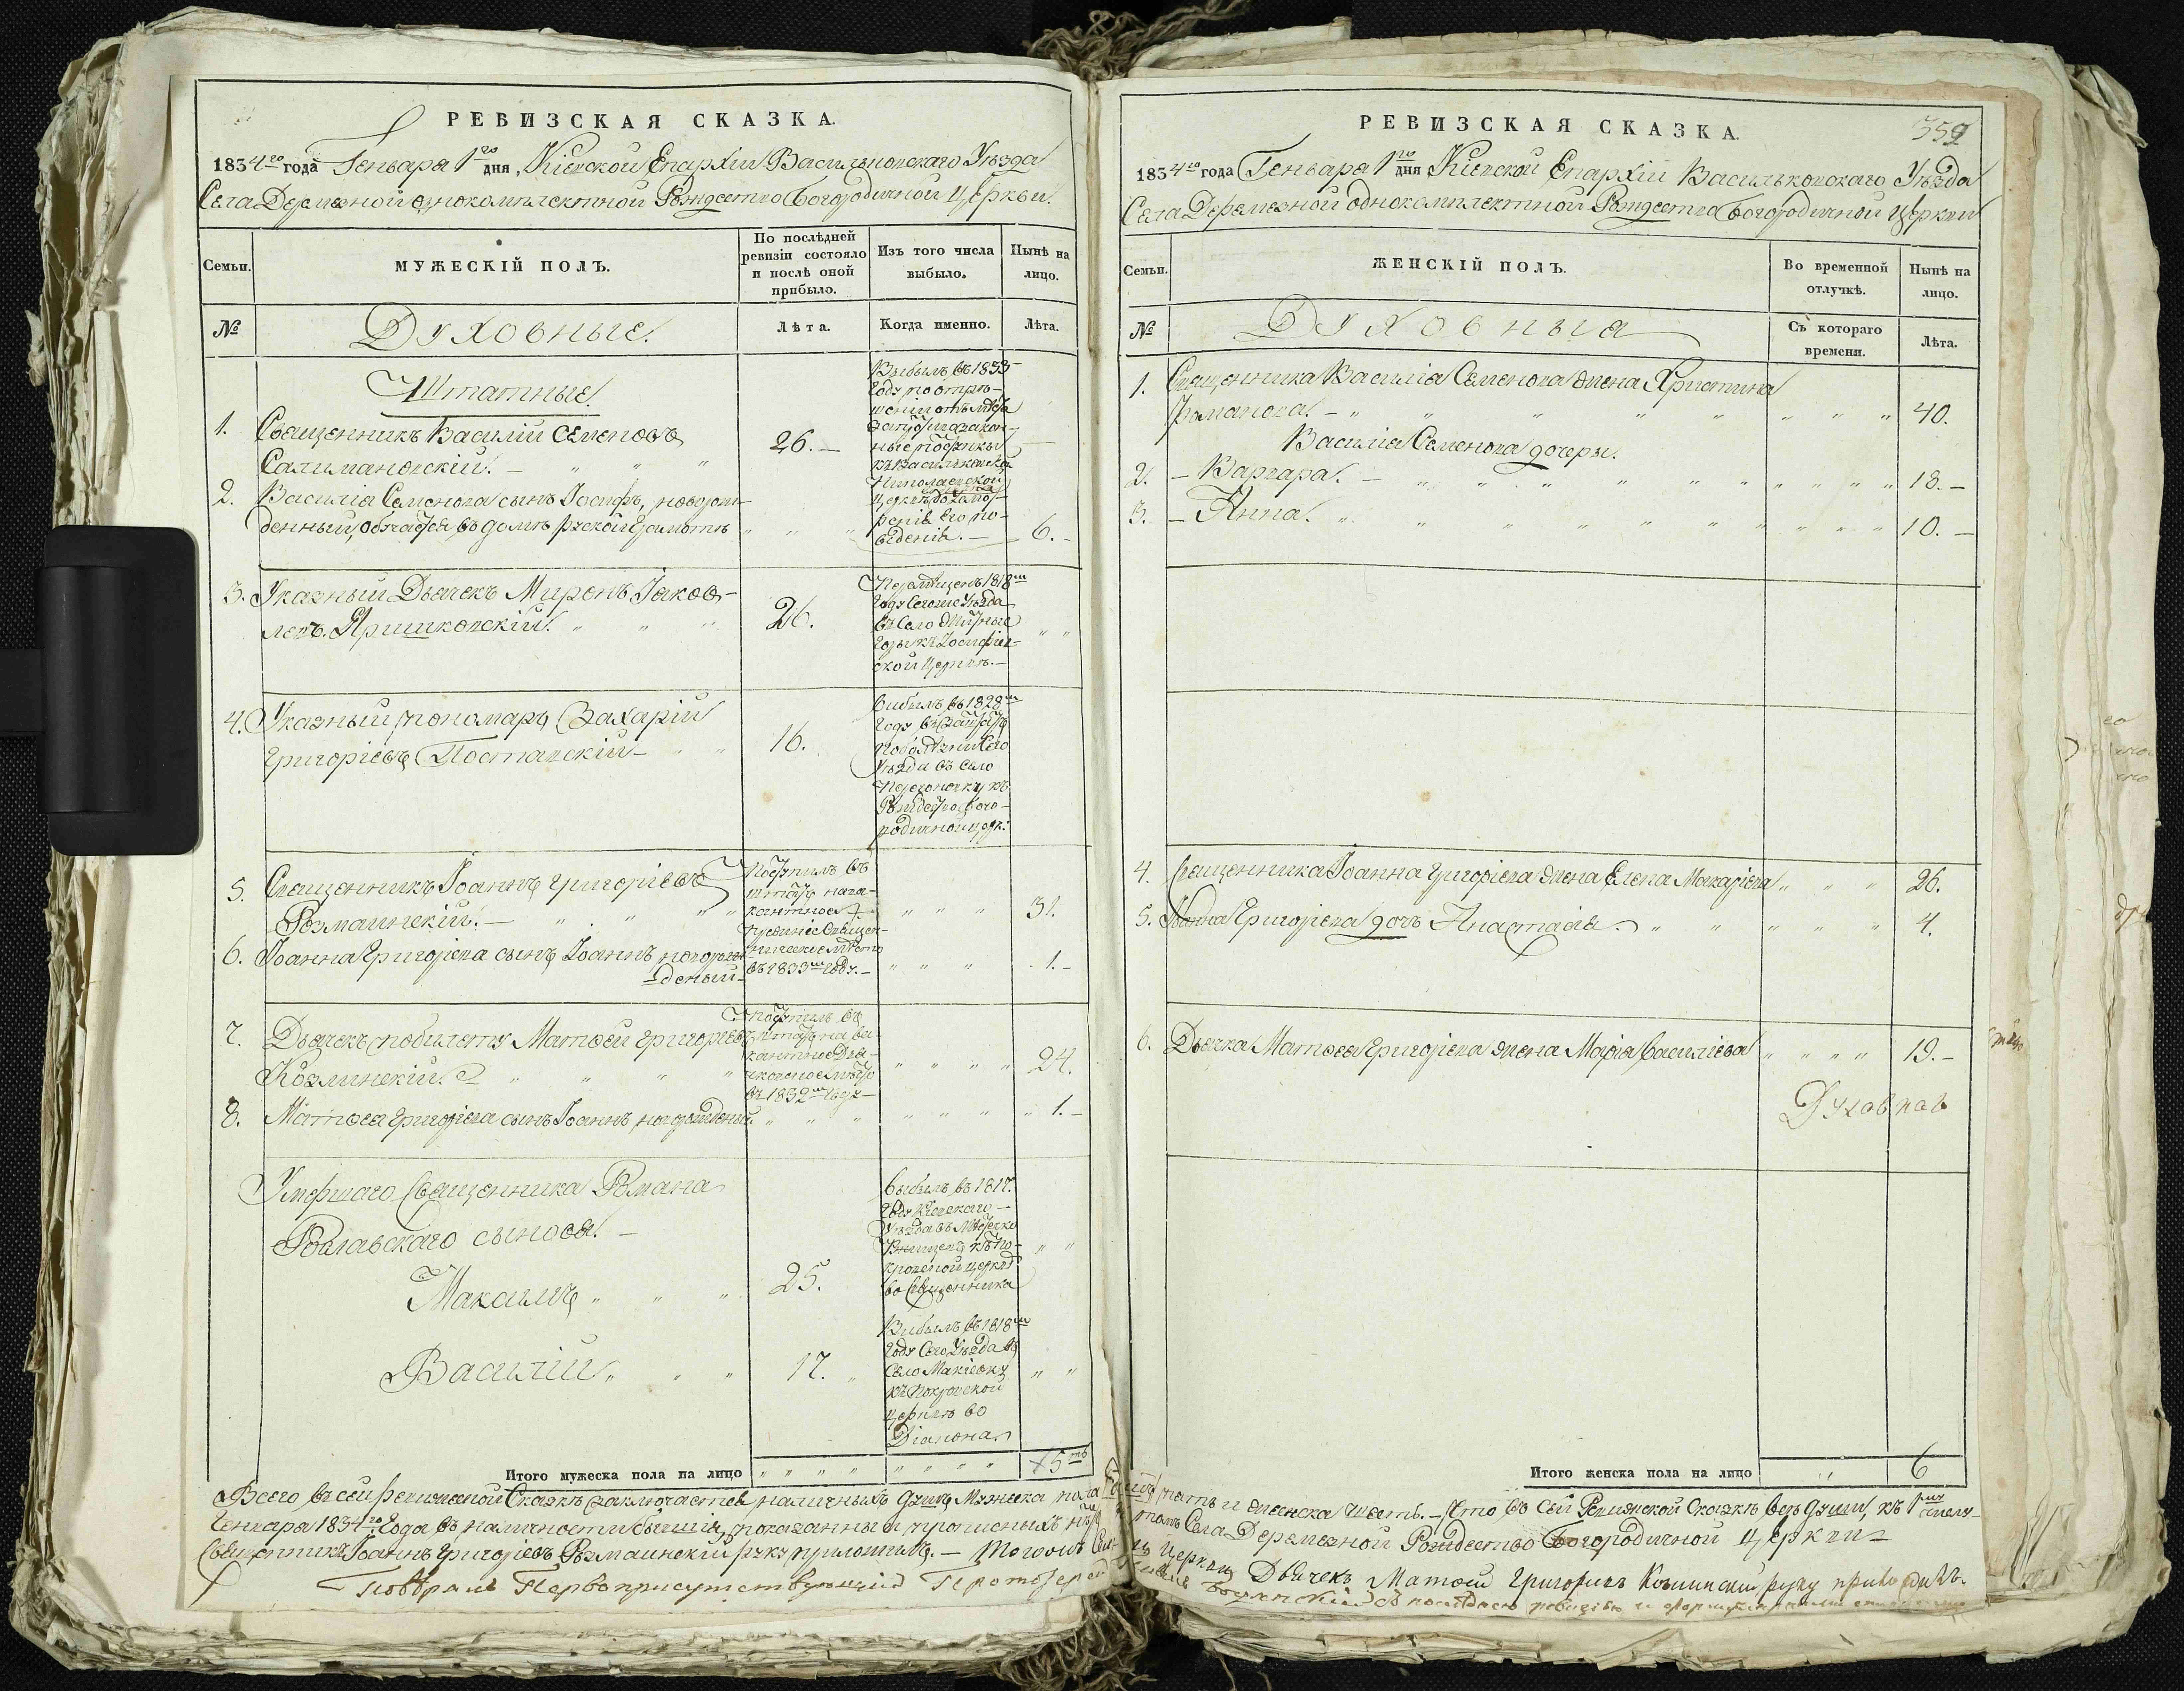 РЕВИЗСКАЯ СКАЗКА.
1834го года Генваря 1го дня, Кіевской Епархіи Васильковскаго Уѣзда
Села Деремезной однокомплектной Рождество Богородичной Церкви.
Семьи.
МУЖЕСКІЙ ПОЛЪ.
По послѣдней
ревизіи состояло
и послѣ оной
прибыло.
Изъ того числа
выбыло.
Нынѣ на
лицо.
№
Духовные.
Лѣта.
Когда именно.
Лѣта.
Штатные.
1. Священникъ Василій Семеновъ
Салимановскій. 26.
Выбылъ въ 1833
году по отрѣ-
шеніи отъ мѣста
къ Васильковской
Николаевской
его по-
веденія.
2. Василія Семенова сынъ Іосифъ, новорож-
денный, обучается въ домѣ руской грамотѣ 6.
3. Указный Дьячекъ Миронъ Іаков-
левъ Яришковскій. 26.
Перемѣщенъ 1818м
году сего же Уѣзда
въ Село
ской церквѣ.
4. Указный пономарь Захарій
Григоріевъ Поставскій 16.
Выбылъ въ 1828м
году
сего
Уѣзда въ село
къ
Рождество Бого-
родичной церк:
5. Священникъ Іоаннъ Григоріевъ
Розмаинскій. 31.
Поступилъ въ
штатъ на ва-
кантное
Священ-
ническое мѣсто
въ 1833м году.
6. Іоанна Григоріева сынъ Іоаннъ новорож-
деный 1.
7. Дьячекъ по билету Матѳей Григоріевъ
Козминскій. 24.
Поступилъ въ
штатъ на ва-
кантное Дья-
чковское мѣсто
въ 1832м году
8. Матѳея Григоріева сынъ Іоаннъ, новорожденый 1.
Умершаго Священника Романа
Рославскаго сыновья.
Максимъ 25.
Выбылъ въ 1817.
году Кіевскаго
Уѣзда въ Мѣстечко
къ По-
кровской церквѣ
во Священника
Василій 17.
Выбылъ въ 1818м
году Сего Уѣзда въ
Село Макіевку
къ Покровской
церквѣ во
Діакона.
Итого мужеска пола на лицо 5ть
РЕВИЗСКАЯ СКАЗКА.
359
1834го года Генваря 1го дня Кіевской Епархіи Васильковскаго Уѣзда
Села Деремезной однокомплектной Рождество Богородичной Церкви
Семьи.
ЖЕНСКІЙ ПОЛЪ.
Во временной
отлучкѣ.
Нынѣ на
лицо.
№
Духовныя
Съ котораго
времени.
Лѣта.
1. Священника Василія Семенова жена Христина
Романова. 40.
Василія Семенова дочеры.
2. Варвара. 13.
3. Анна. 10.
4. Священника Іоанна Григоріева жена Елена Макаріева 26.
5. Іоанна Григоріева дочь Анастасія. 4.
6. Дьячка Матѳея Григоріева жена Марія Василіева 19.
Итого женска пола на лицо 6
Всего въ сей Ревизской Сказкѣ заключается наличныхъ душъ Мужеска пола пять и женска шесть. Что въ сей Ревизской Сказкѣ всѣ души, къ 1му числу
Генваря 1834го года въ наличности бывшія, показанны и прописныхъ нѣтъ, въ томъ Села Деремезной Рождество Богородичной Церкви
Священникъ Іоаннъ Григоріевъ Розмаинскій руку приложилъ. Тогожъ Села Церкви Дьячекъ Матѳей Григоріевъ Козминскій руку приложилъ.
Повѣрялъ Первоприсутствующій Протоіерей